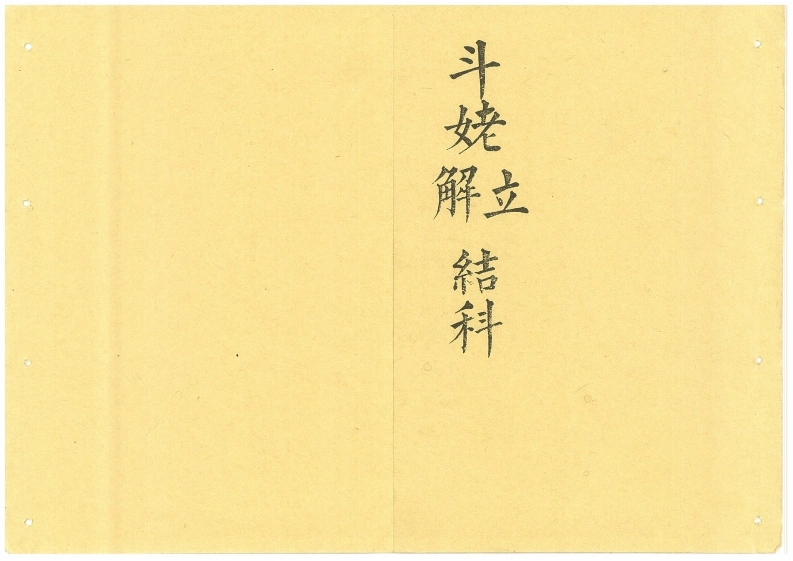 斗姥立解結科